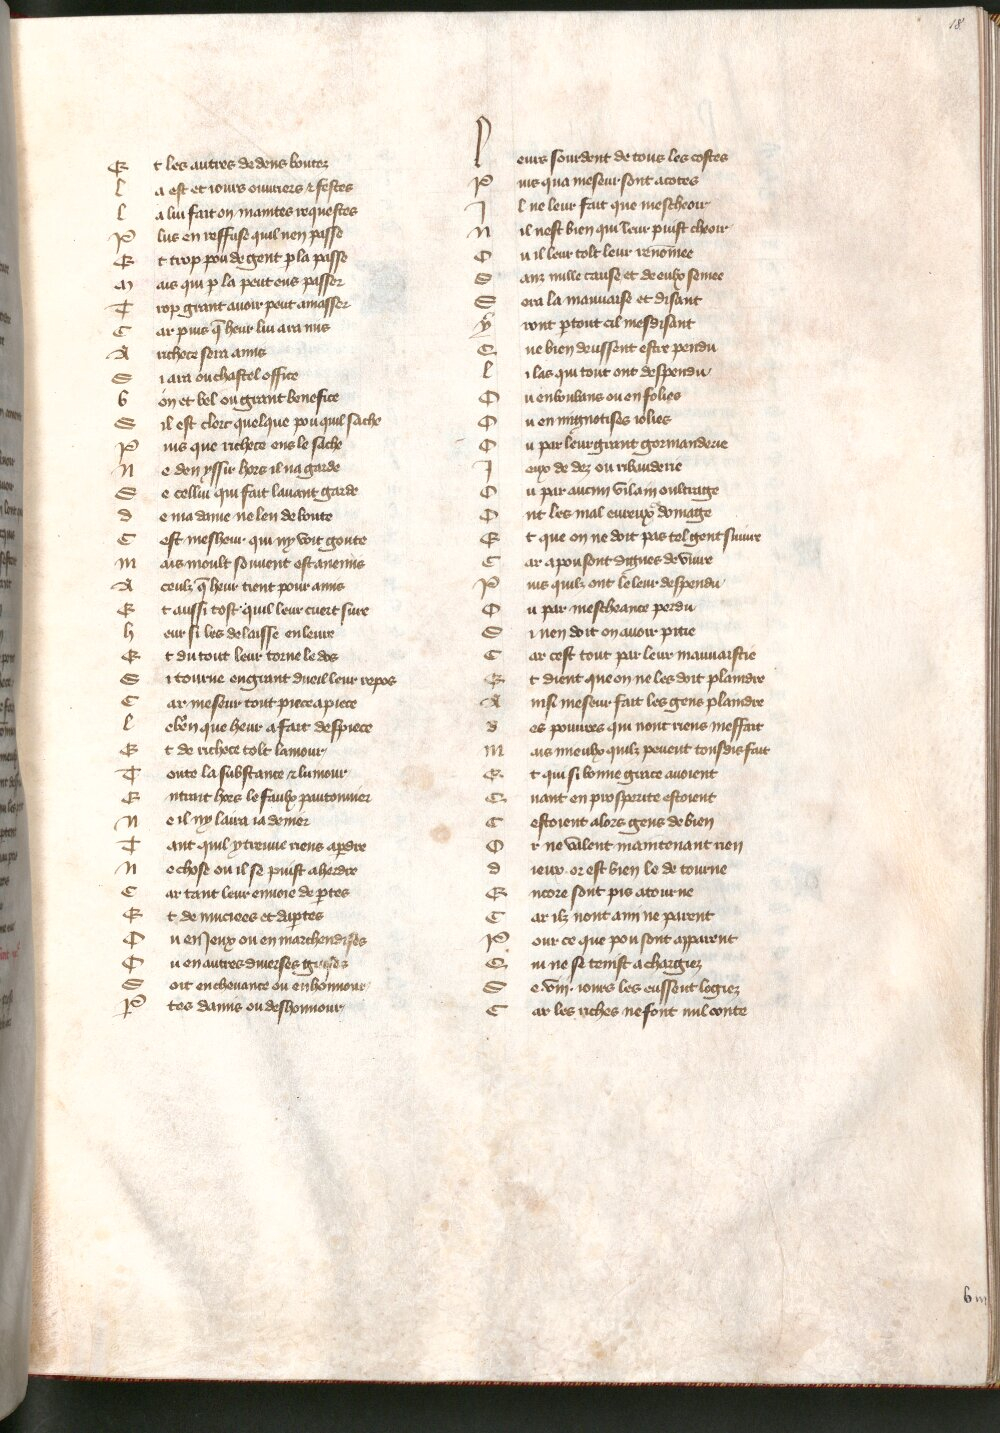 18
Et les autres dedens bouter
La est et iours ouuriers & festes
La lui fait on maintes requestes
Plus en reffuse quil nen passe
Et trop pou de gent p la passe
Mais qui p la peut ens passer
Trop grant auoir peut amasser
Car puis q̄ heur lui ara mis
A richece sera amis
Si ara ou chastel office
Bon et bel ou grant benefice
Sil est clerc quelque pou quil sache
Puis que richece ens le sache
Ne den yssir hors il na garde
Se cellui qui fait lauant garde
De ma dame ne len deboute
Cest mesheur qui ny voit goute
Mais moult souuent est anemis
A ceulz q̄ heur tient pour amis
Et aussi tost quil leur cuert sure
Heur si les delaisse en leure
Et du tout leur torne le dos
Si tourne en grant dueil leur repos
Car meseur tout piece a piece
Le bien que heur a fait despiece
Et de richece tolt lamour
Toute la substance & lumour
Entrant hors le faulx pautonnier
Ne il ny laira ia denier
Tant quil y treuue riens a pdre
Ne chose ou il se puist aherdre
Car tant leur enuoie de ptes
Et de muciees et daptes
Ou en Jeux ou en marchendises
Ou en autres diuerses guises
Soit en cheuance ou en honnour
Ptes damis ou deshonnour
Pleurs sourdent de tous les costes
Puis qua meseur sont acotes
Il ne leur fait que mescheoir
Nil nest bien qui leur puist cheoir
Ou il leur tolt leur renommee
Sanz nulle cause et deulx semee
Sera la mauuaise et disant
Yront ptout cil mesdisant
Que bien deussent estre pendu
Li las qui tout ont despendu
Ou en boubans ou en folies
Ou en mignotises iolies
Ou par leur grant gormanderie
Jeux de dez ou ribauderie
Ou par aucun vilain oultrage
Ont les mal eureux domage
Et que on ne doit pas tel gent suiuir
Car a pou sont dignes de viure
Puis quilz ont le leur despendu
Ou par mescheance perdu
Si nen doit on auoir pitie
Car cest tout par leur mauuaistie
Et dient que on ne les doit plaindre
Ainsi meseur fait les gens plaindre
Des pouures qui nont riens meffait
Mais mieulx quilz peuent tousdis fait
Et qui si bonne grace auoient
Quant en prosperite estoient
Cestoient alors gens de bien
Or ne valent maintenant rien
Dieux or est bien le de tourne
Encore sont pis atourne
Car ilz nont ami ne parent
Pour ce que pou sont apparent
Qui ne se tenist a chargiez
Se .viij. iours les eussent logiez
Car les riches ne font nul conte